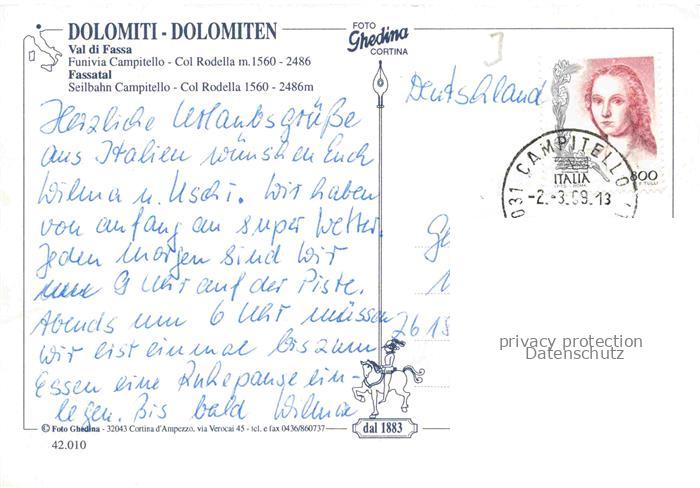 DOLOMITI - DOLOMITEN
Val di Fassa
Funivia Campitello - Col Rodella m.1560 - 2486
Fassatal
Seilbahn Campitello - Col Rodella 1560 - 2486m
FOTO
Ghedina
CORTINA
Deutschland
800
ITALIA
031 CAMPITELLO
-2.-3.69.13
Herzliche Urlaubsgrüße
aus Italien wünschen Euch
Wilma u. Uschi. Wir haben
von anfang an super Wetter.
Jeden Morgen sind wir
9 Uhr auf der Piste.
Abends um 6 Uhr müssen
wir erst einmal bis zum
Essen eine Ruhepause ein-
legen. Bis bald Wilma
2618
privacy protection
Datenschutz
© Foto Ghedina - 32043 Cortina d'Ampezzo, via Verocai 45 - tel. e fax 0436/860737
dal 1883
42.010